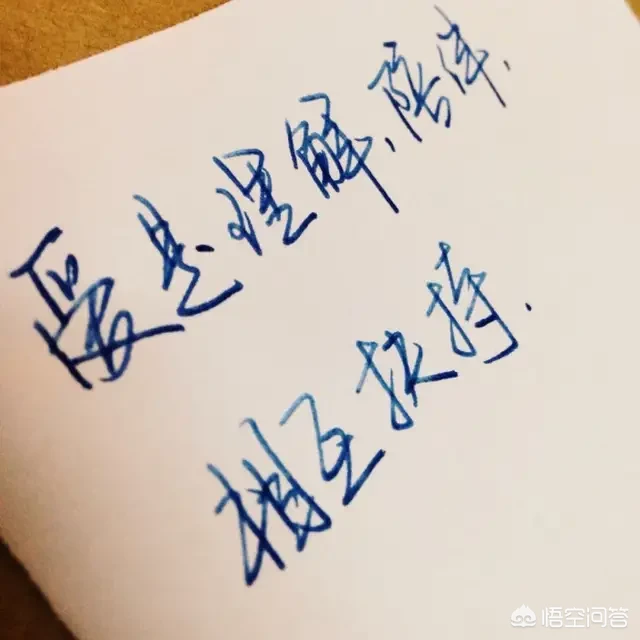 爱是理解、陪伴、
相互扶持.
悟空问答